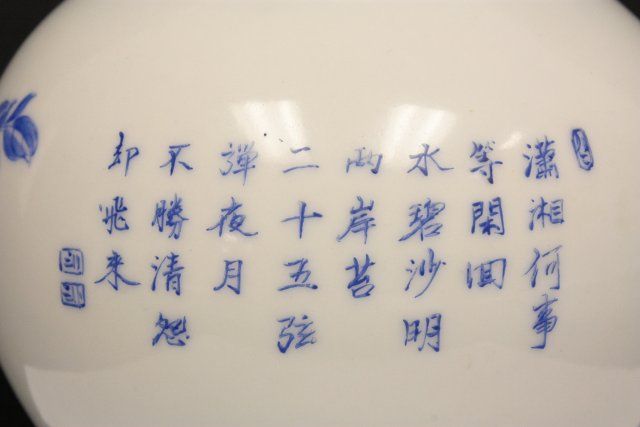 瀟湘何事
等閑回
水碧沙明
兩岸苔
二十五弦
彈夜月
不勝清怨
却飛來